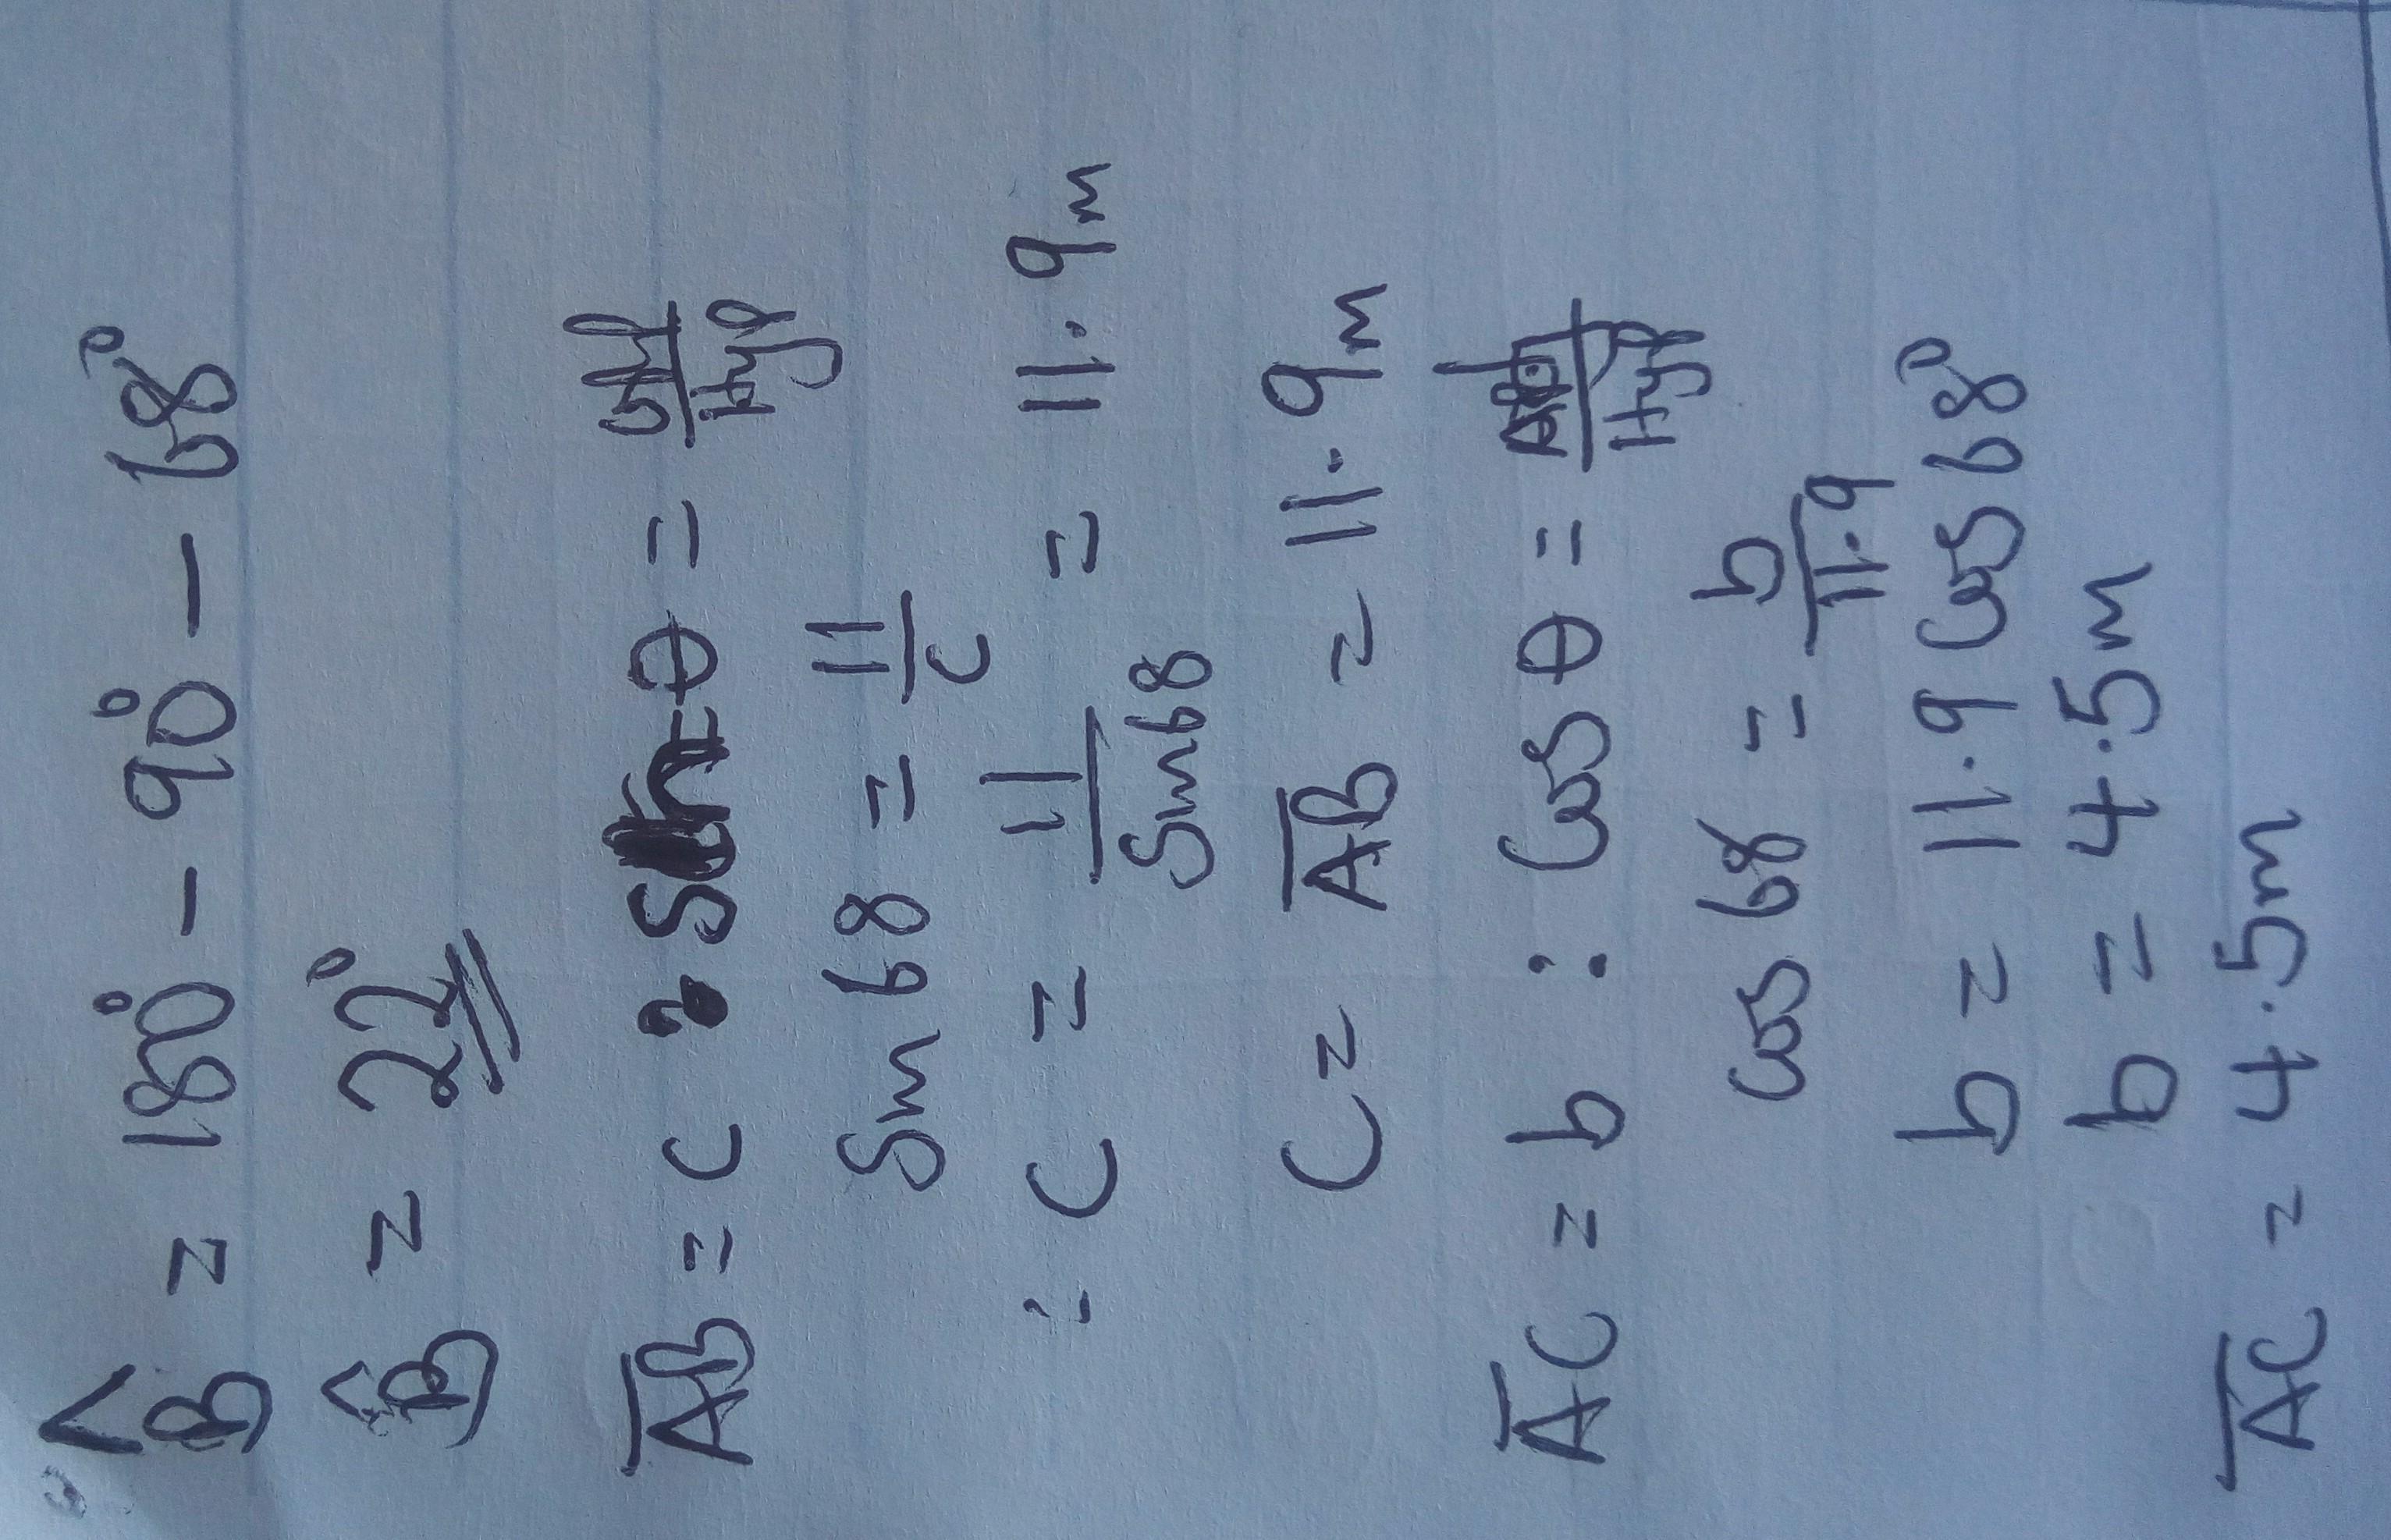 B̂ = 180° - 90° - 68°
B̂ = 22°
A̅B̅ = c : Sin θ = /Hyp
Sin 68 = 11/c
∴ C = 11/Sin68 = 11.9m
C = A̅B̅ = 11.9m
A̅C = b : Cos θ = Adj/Hyp
Cos 68 = b/11.9
b = 11.9 Cos 68°
b = 4.5m
A̅C̅ = 4.5m